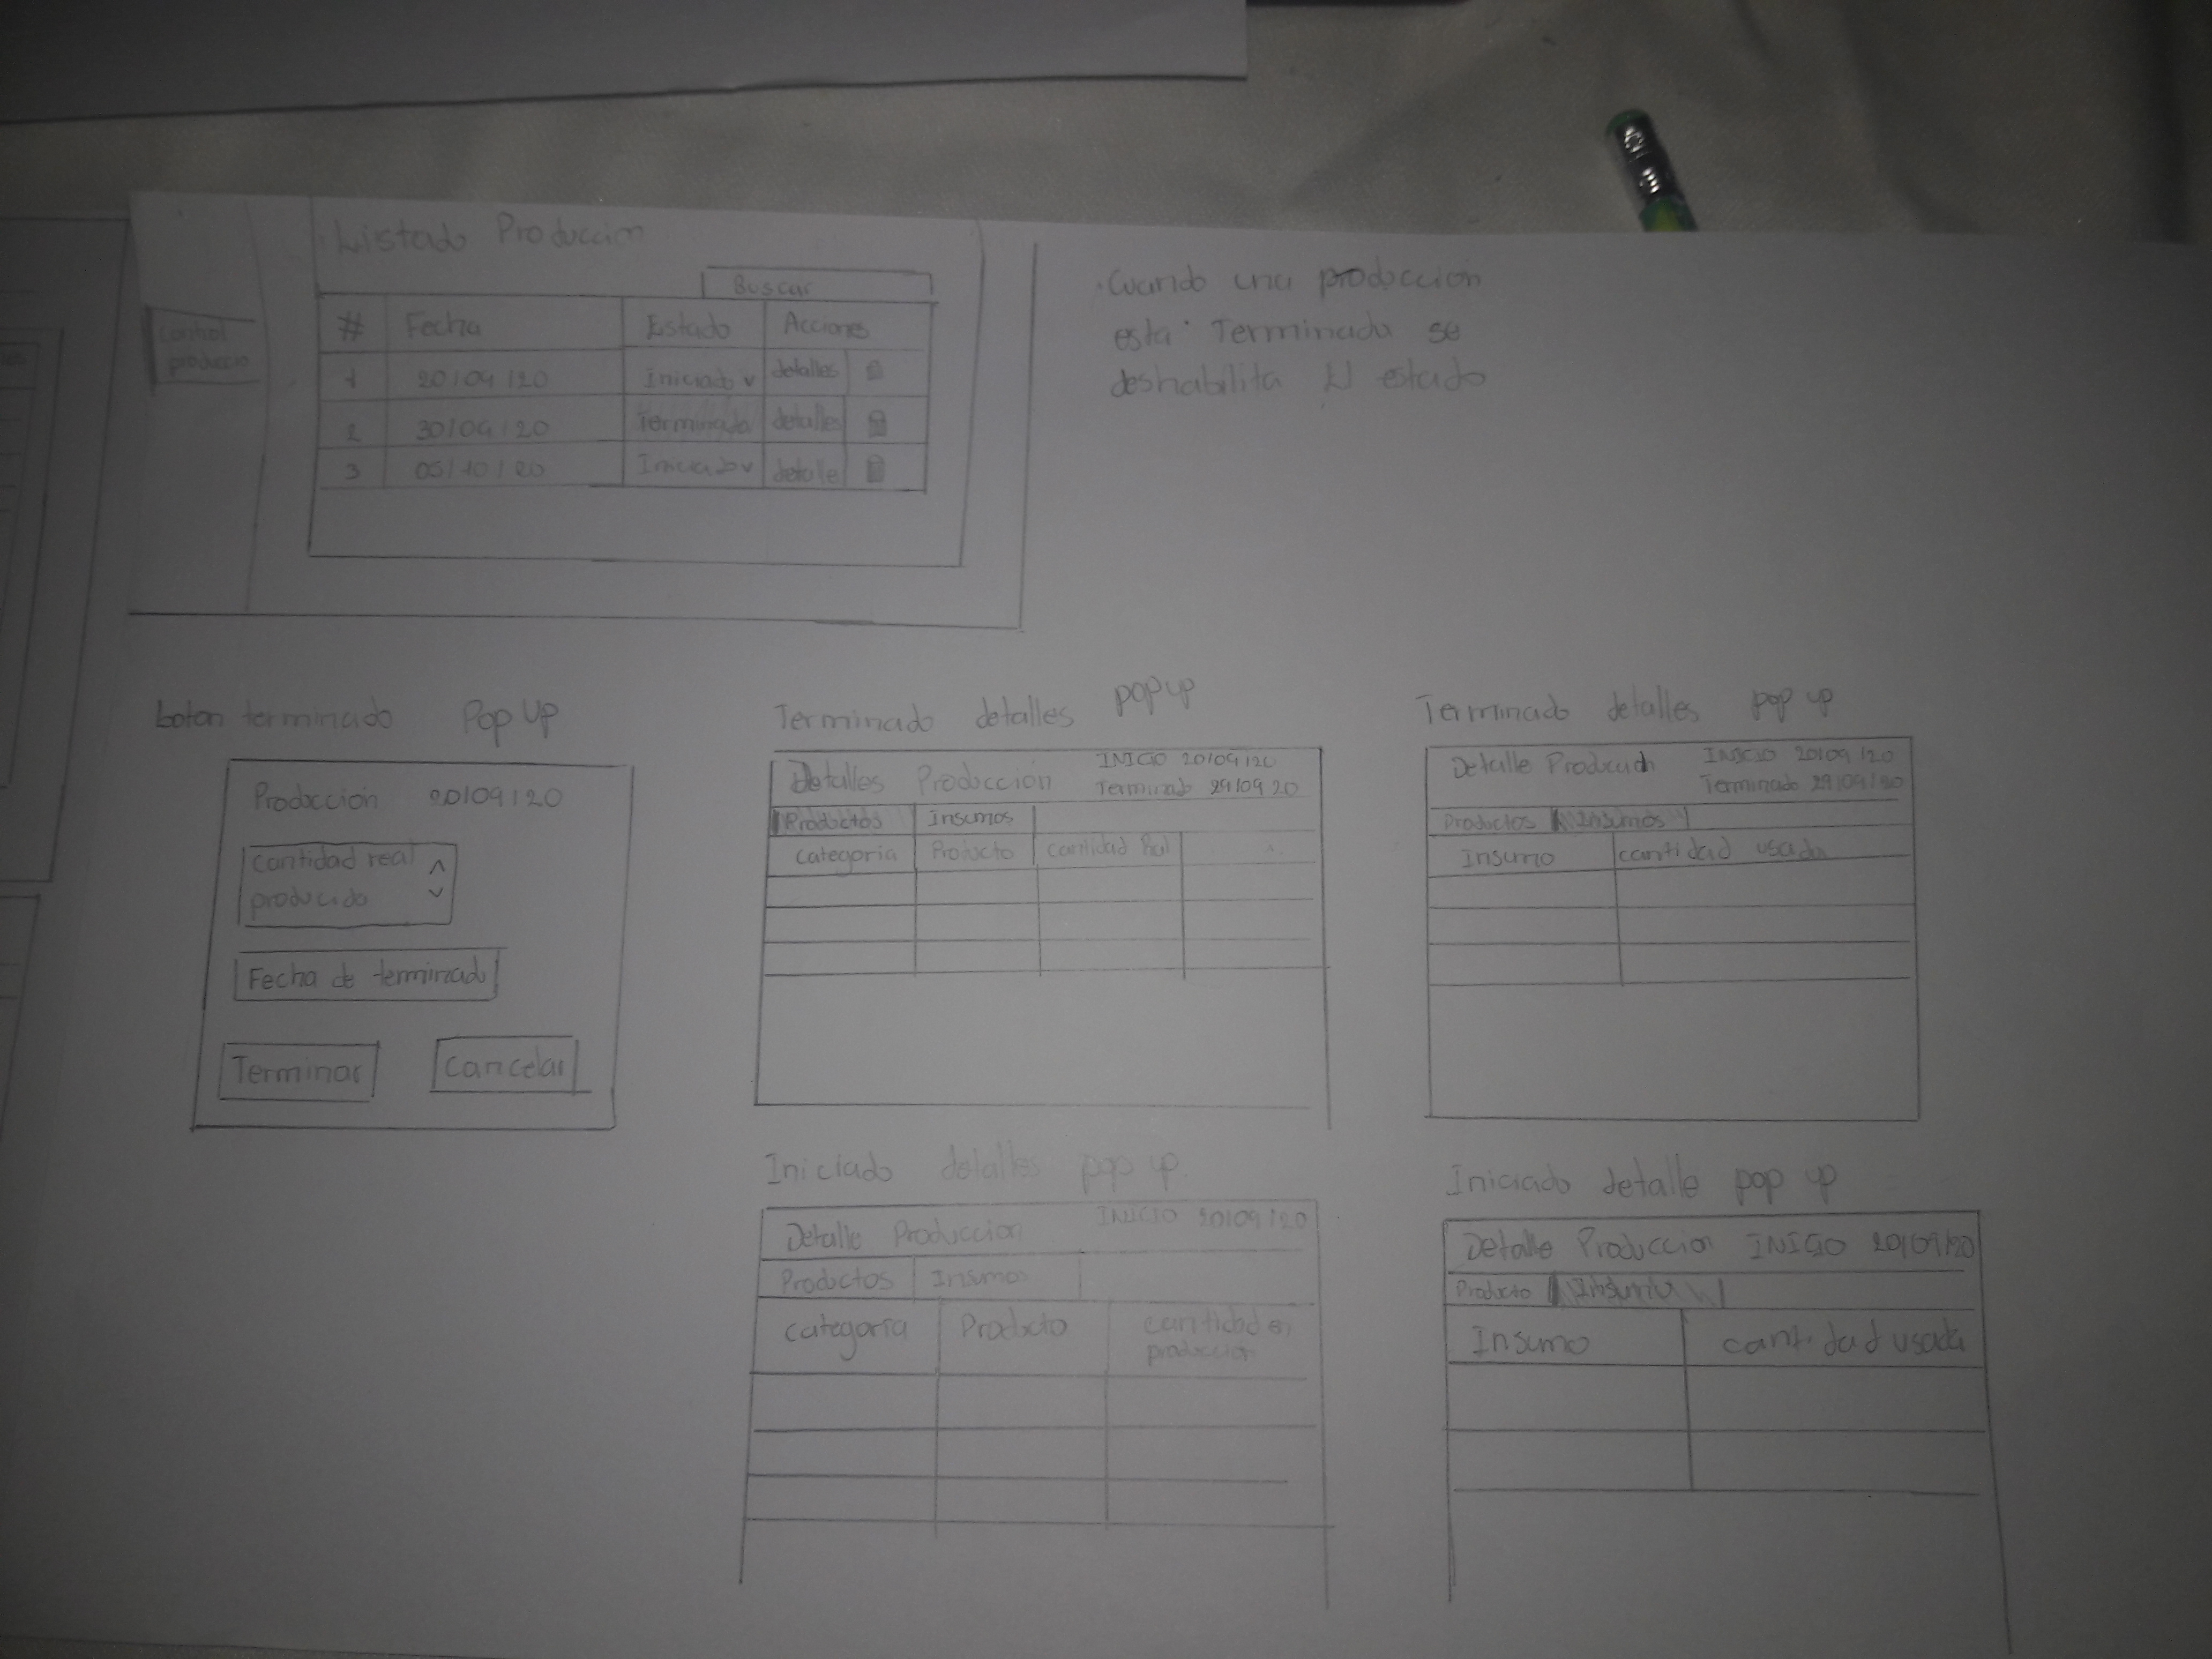 Listado Produccion
Buscar
control
produccio
# Fecha Estado Acciones
1 20/09/20 Iniciado v detalles
2 30/09/20 Terminada detalles
3 05/10/20 Iniciado v detalle
· Cuando una produccion
esta Terminada se
deshabilita el estado
boton terminado Pop Up
Produccion 20/09/20
cantidad real
producido
Fecha de terminado
Terminar Cancelar
Terminado detalles popup
Detalles Produccion INICIO 20/09/20
Terminado 29/09 20
Productos Insumos
categoria Producto cantidad Real
Terminado detalles pop up
Detalle INICIO 20/09/20
Terminado 29/09/20
Productos Insumos
Insumo cantidad usada
Iniciado detalles pop up.
Detalle Produccion INICIO 20/09/20
Productos Insumos
categoria Producto cantidad en
produccion
Iniciado detalle pop up
Detalle Produccion INICIO 20/09/20
Producto
Insumo cantidad usada